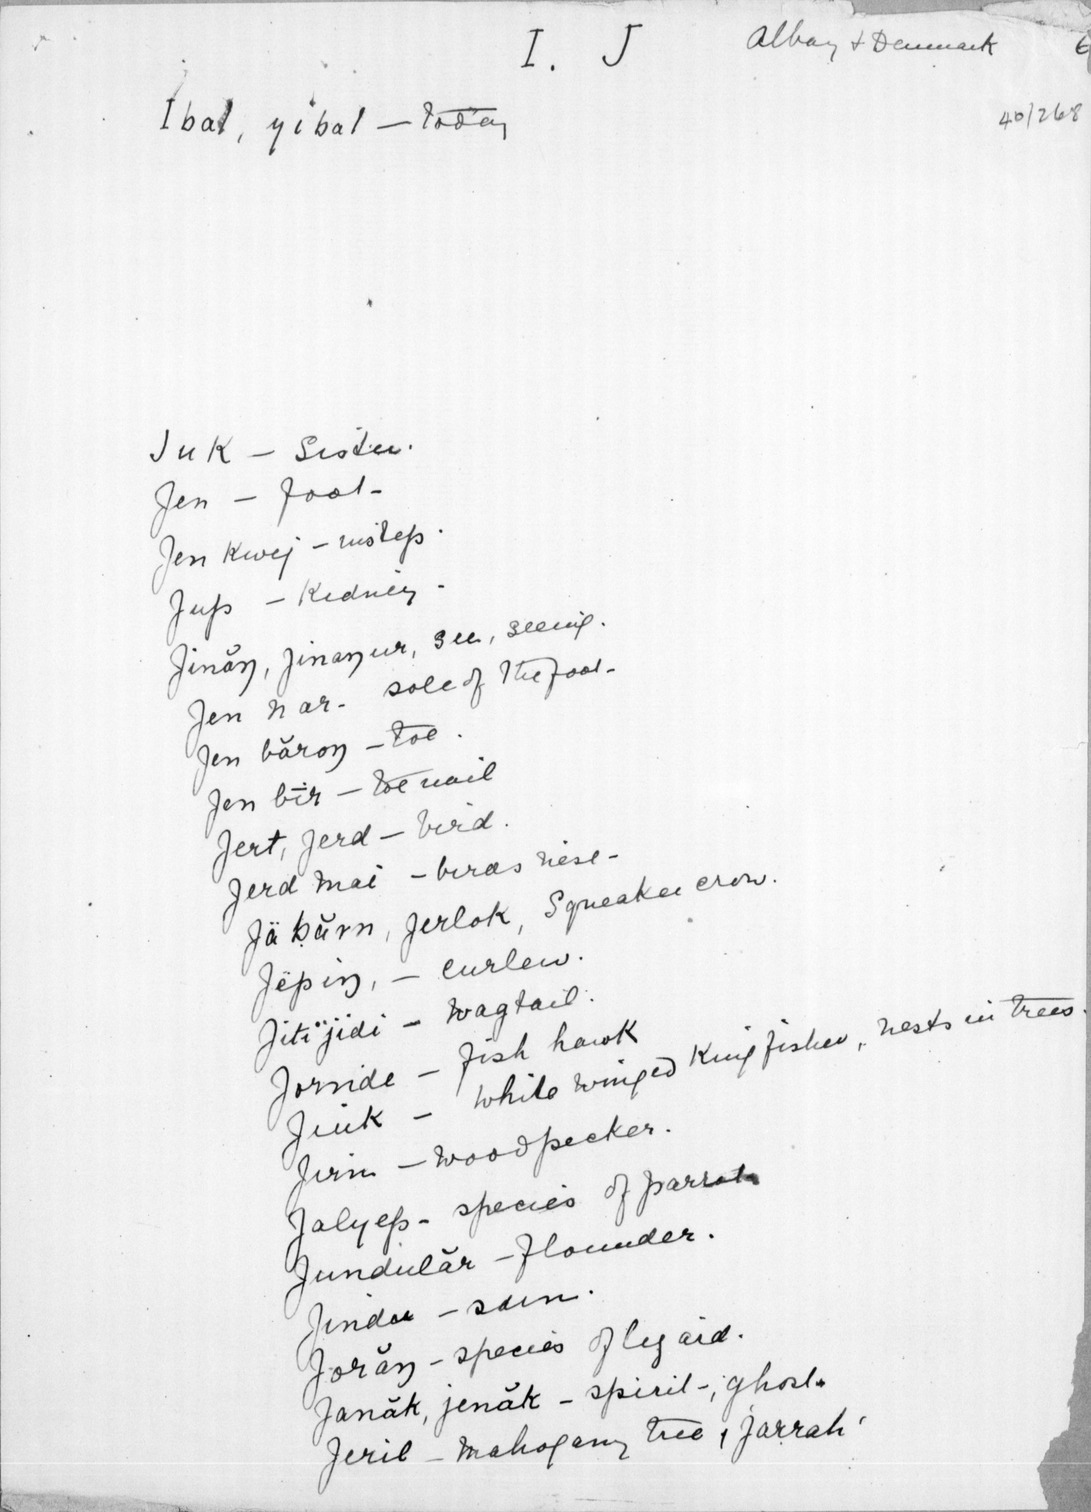 I. J
Albany & Denmark 6
40/268
Ibal, yibal — today
Juk — Sister.
Jen — foot-
Jen Kwej — instep.
Jup — Kidney.
Jinăŋ, jinaŋ ur, see, seeing.
Jen ŋar - sole of the foot-
Jen băroŋ — toe.
Jen bīr — toe nail
Jert, jerd — bird.
Jerd mai — birds nest-
Jä bărn, jerlok, Squeaker crow.
Jëpiŋ, — curlew.
Jitïjidi — wagtail.
Jornide — fish hawk
— white winged Kingfisher, nests in trees.
— woodpecker.
Jalyep - species of parrot
Jundulăr — flounder.
— .
Jorăŋ — species of lizard.
Janăk, jenăk — spirit-, ghost.
Jeril — mahogany tree, jarrah